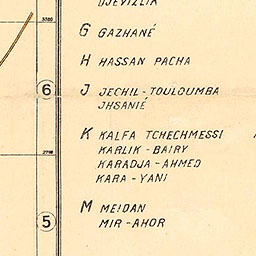 DJEVIZLIK
G GAZHANÉ
H HASSAN PACHA
J JECHIL-TOULOUMBA
JHSANIÉ
K KALFA TCHECHMESSI
KARLIK-BAIRY
KARADJA-AHMED
KARA-YANI
M MEIDAN
MIR-AHOR
6
5